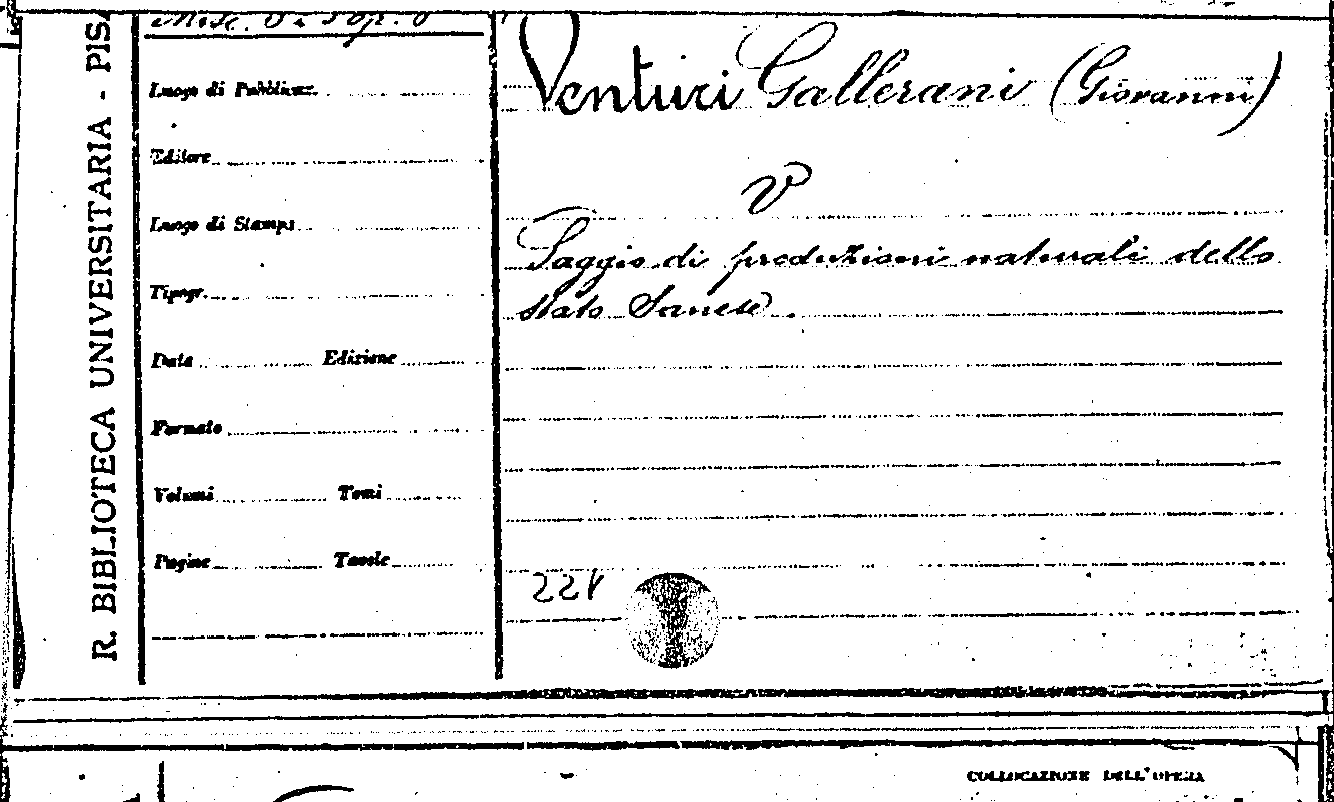 R. BIBLIOTECA UNIVERSITARIA - PISA
Misc.
Luogo di Pubblicaz.
Editore
Luogo di Stampa
Tipogr.
Data Edizione
Formato
Volumi Tomi
Pagine Tavole
Venturi Gallerani (Giovanni)
V
Saggio di produzioni naturali dello
stato Sanese.
221
COLLOCAZIONE DELL'OPERA